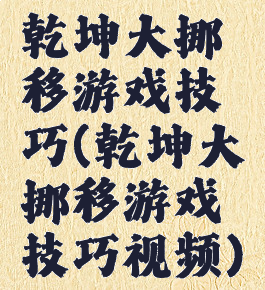 乾坤大挪
移游戏技
巧(乾坤大
挪移游戏
技巧视频)